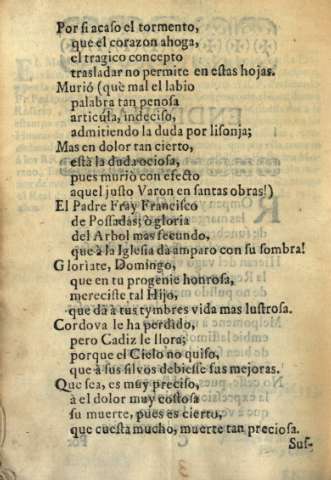 Por si acaso el tormento,
que el corazon ahoga,
el tragico concepto
trasladar no permite en estas hojas.
Murió (que mal el labio
palabra tan penosa
articula, indeciso,
admitiendo la duda por lisonja;
Mas en dolor tan cierto,
està la duda ociosa,
pues murió con efecto
aquel justo Varon en santas obras!)
El Padre Fray Francisco
de Possadas; ò gloria
del Arbol mas fecundo,
que à la Iglesia dà amparo con su sombra!
Gloriate, Domingo,
que en tu progenie honrosa,
mereciste tal Hijo,
que dà à tus tymbres vida mas lustrosa.
Cordova le ha perdido,
pero Cadiz le llora;
porque el Cielo no quiso,
que à sus silvos debiesse sus mejoras.
Que sea, es muy preciso,
à el dolor muy costosa
su muerte, pues es cierto,
que cuesta mucho, muerte tan preciosa.
Sus-